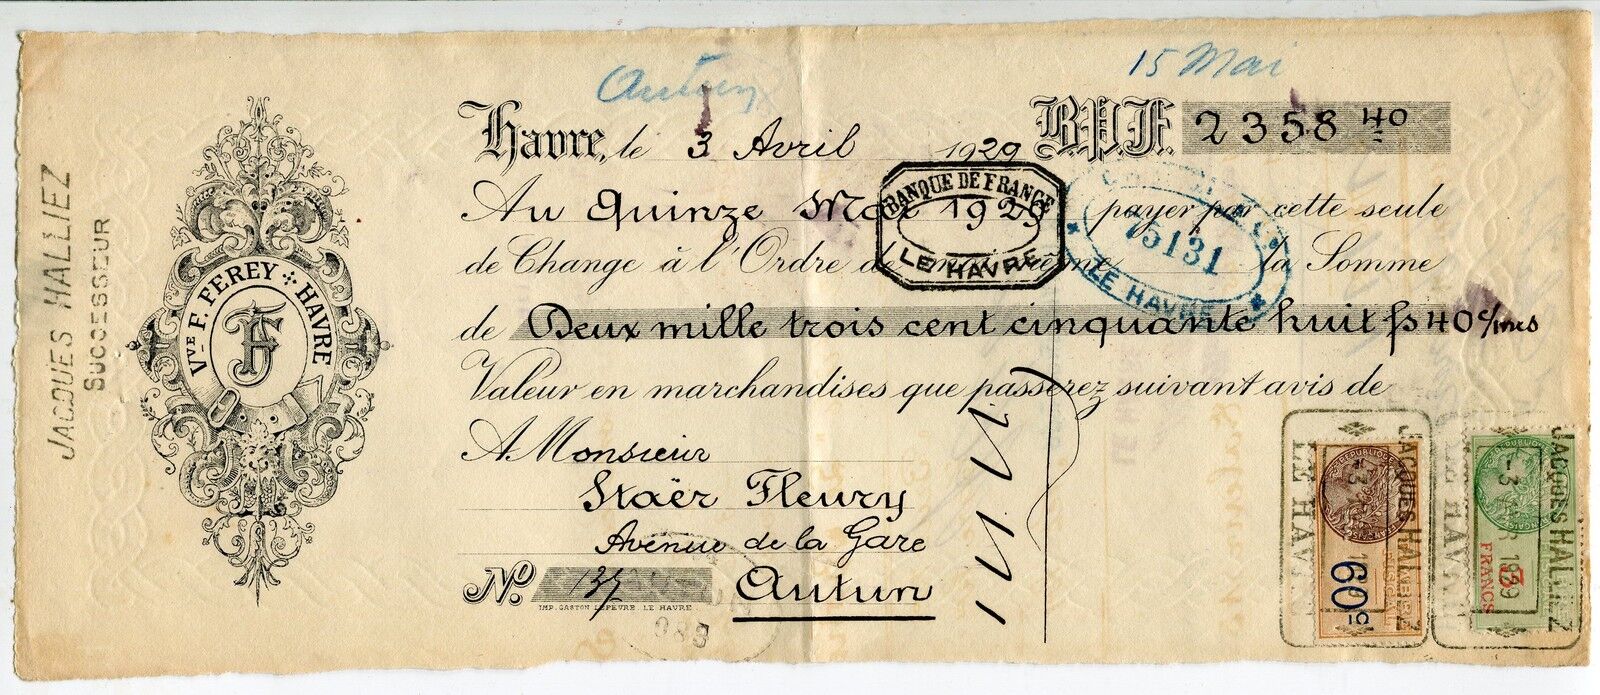 Autun
15 Mai
JACQUES HALLIEZ
SUCCESSEUR
Vve F. FEREY HAVRE
F
Havre, le 3 Avril 1929 B.P.F. 2358 40
Au Quinze Mai 1929 payer par cette seule
BANQUE DE FRANCE
LE HAVRE
75131
LE HAVRE
de Change à l'Ordre de la Somme
de Deux mille trois cent cinquante huit fs 40 c/mes
Valeur en marchandises que passerez suivant avis de
A Monsieur
Staër Fleury
Avenue de la Gare
No 137 Autun
IMP. GASTON LEFEVRE LE HAVRE
983
JACQUES HALLIEZ
LE HAVRE
60 c
JACQUES HALLIEZ
LE HAVRE
3
FRANCS